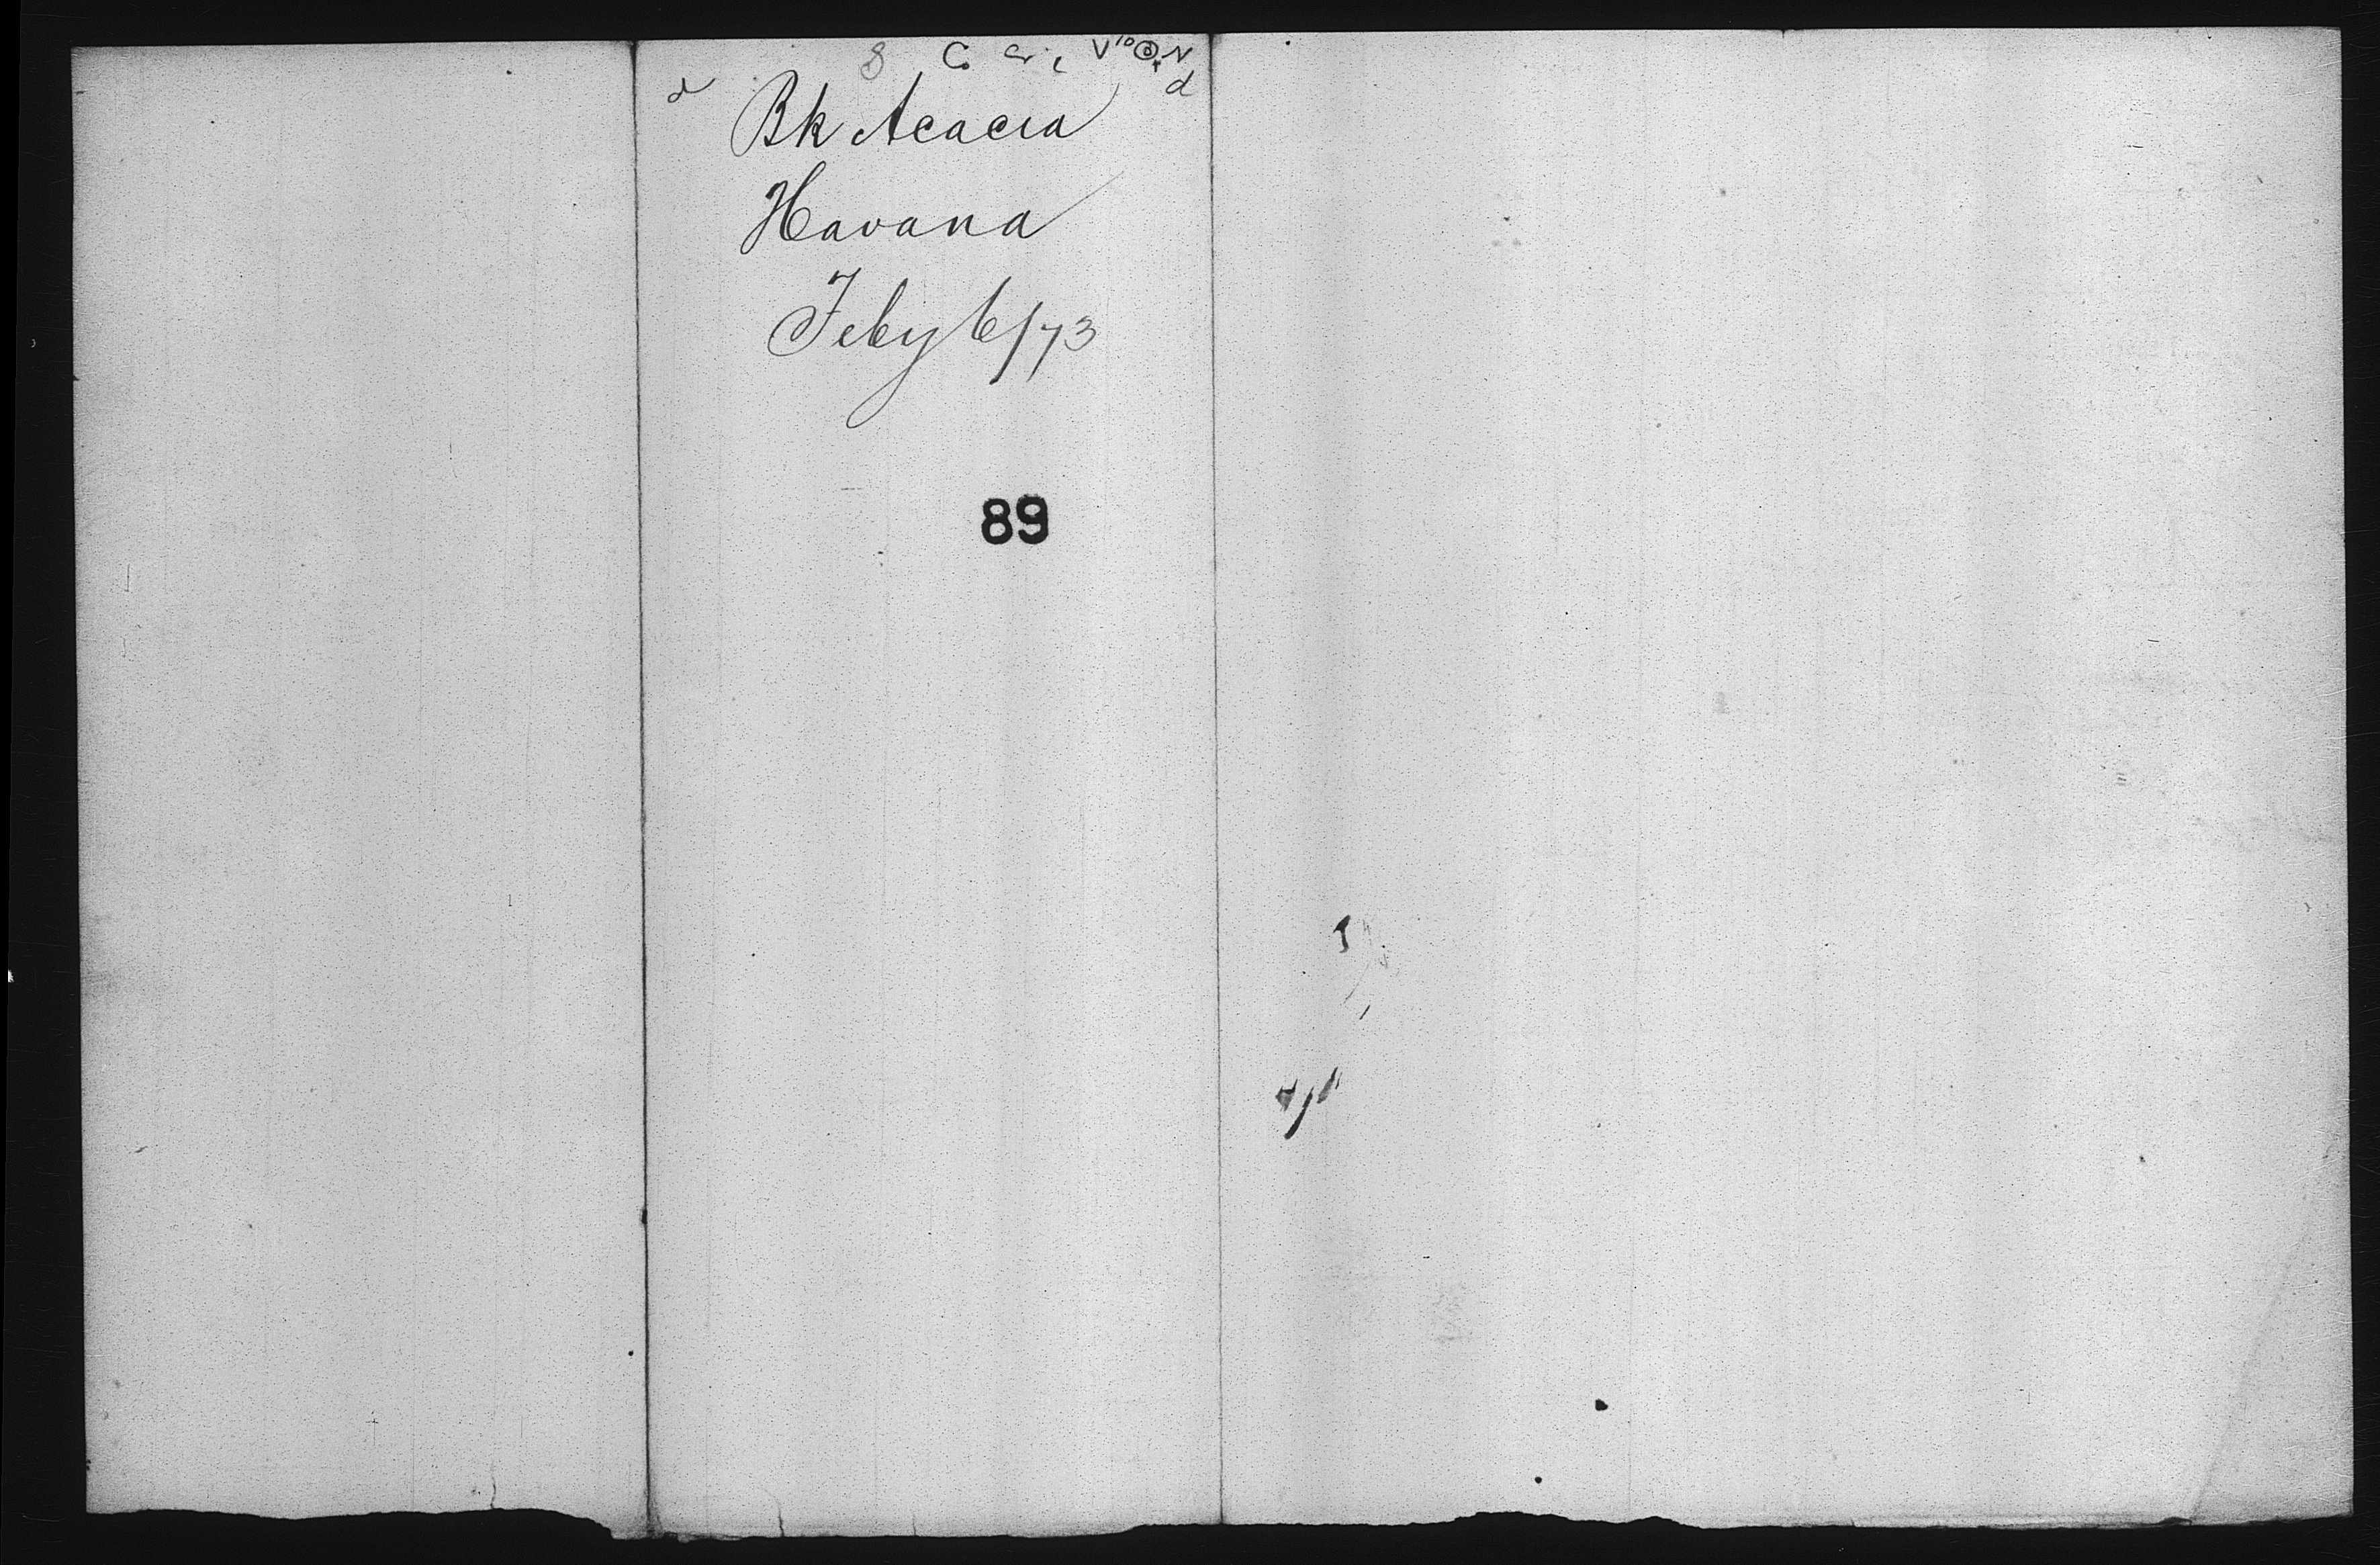 Bk Acacia
Havana
Feby 6/73
89